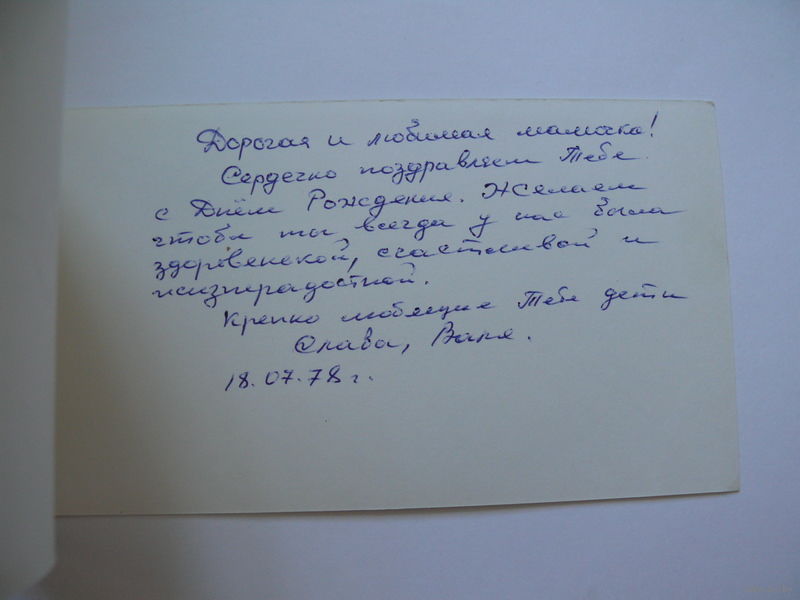 Дорогая и любимая мамочка!
Сердечно поздравляем Тебя
с Днём Рождения. Желаем
чтобы ты всегда у нас была
здоровенькой, счастливой и
жизнерадостной.
Крепко любящие Тебя дети
Слава, Валя.
18.07.78 г.